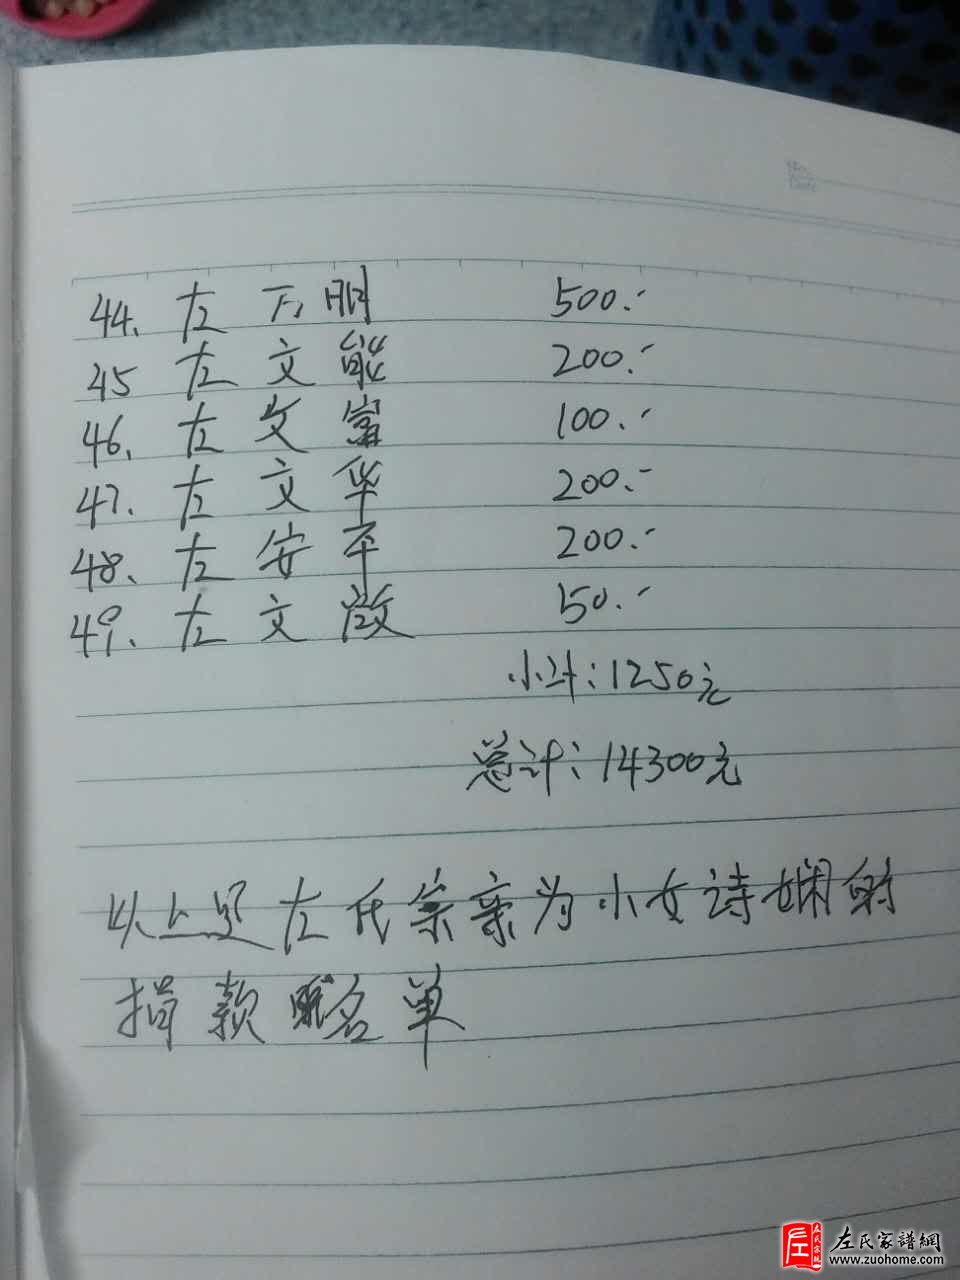 No.
Date
44、左万明 500.-
45 左文能 200.-
46、左文富 100.-
47、左文华 200.-
48、左安平 200.-
49、左文啟 50.-
小计：1250元
总计：14300元
以上是左氏宗亲为小女诗娴的
捐款名单
左氏家譜網
www.zuohome.com